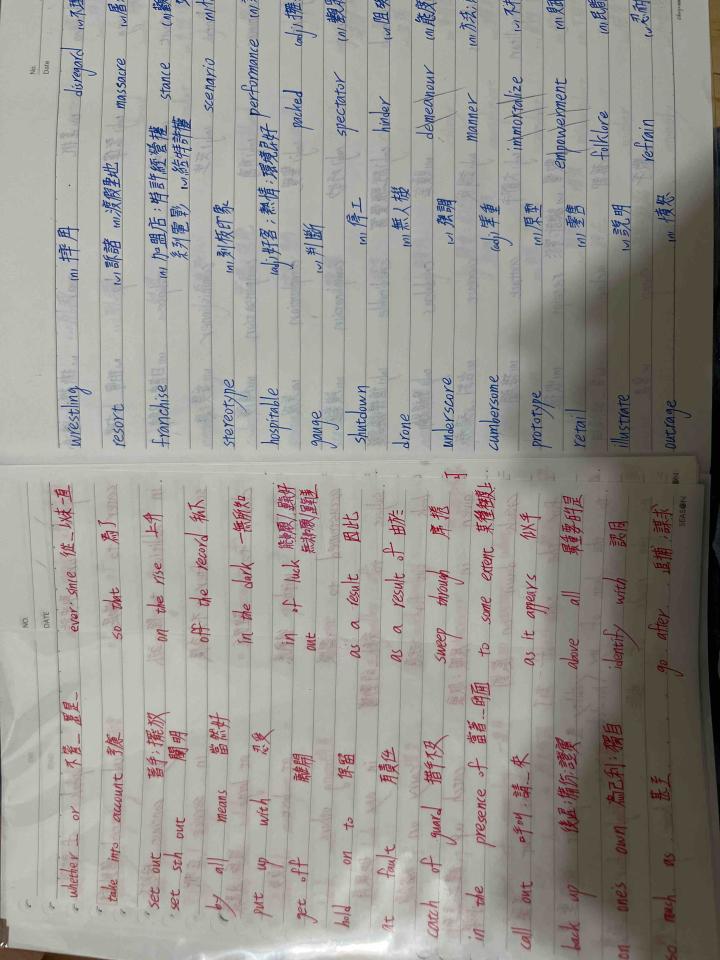 No.
Date
wrestling (n) 摔角 disregard (v) 不理
resort (v) 訴諸 (n) 渡假聖地 massacre
franchise (n) 加盟店；特許經營權 stance
系列電影 (v) 給特許權
stereotype (n) 刻板印象 scenario
hospitable (adj) 好客；熱情；環境良好 performance
gauge (v) 判斷 packed (adj)
shutdown (n) 停工 spectator (n)
drone (n) 無人機 hinder (v) 阻
underscore (v) 強調 demeanour (n) 態度
cumbersome (adj) 笨重 manner (n) 方法
prototype (n) 原型 immortalize (v) 不朽
retail (n) 零售 empowerment (n)
illustrate (v) 說明 folklore (n) 民
outrage (n) 憤怒 refrain (v) 忍耐
NO.
DATE
SEASON
whether _ or _ 不管_還是_ ever since 從_以來一直
take into account 考慮 so that 為了
set out 著手；擺放 on the rise 上升
set sth out 闡明
by all means 當然好 off the record 私下
put up with 忍受 in the dark 一無所知
get off 離開 in of luck
out
hold on to 保留 as a result 因此
at fault 有責任 as a result of 由於
catch of guard 措手不及 sweep through 席捲
in the presence of 當著_的面 to some extent 某種程度上
call out 呼叫；請_來 as it appears 似乎
back up above all 最重要的是
on one's own 為己利；獨自 identify with 認同
so much as 甚至 go after 追捕；謀求